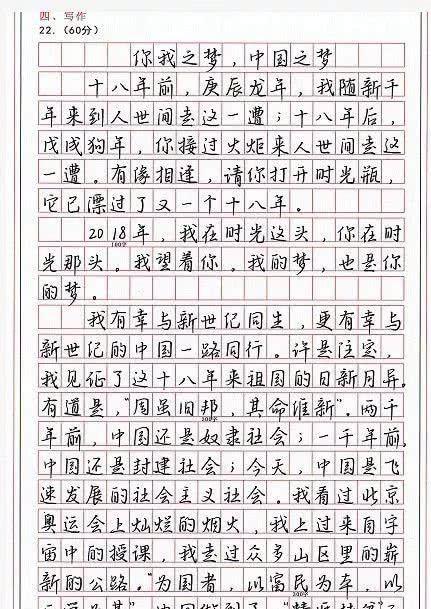 四、写作
22.（60分）
你我之梦，中国之梦
十八年前，庚辰龙年，我随新千
年来到人世间去这一遭；十八年后，
戊戌狗年，你接过火炬来人世间去这
一遭。有缘相逢，请你打开时光瓶，
它已漂过了又一个十八年。
2018年，我在时光这头，你在时
100字
光那头。我望着你。我的梦，也是你
的梦。
我有幸与新世纪同生，更有幸与
新世纪的中国一路同行。许是注定，
我见证了这十八年来祖国的日新月异。
有道是，“周虽旧邦，其命维新”。两千
200字
年前，中国还是奴隶社会；一千年前，
中国还是封建社会；今天，中国是飞
速发展的社会主义社会。我看过北京
奥运会上灿烂的烟火，我上过来自宇
宙中的授课，我走过众多山区里的崭
新的公路。“为国者，以富民为车，以
300字